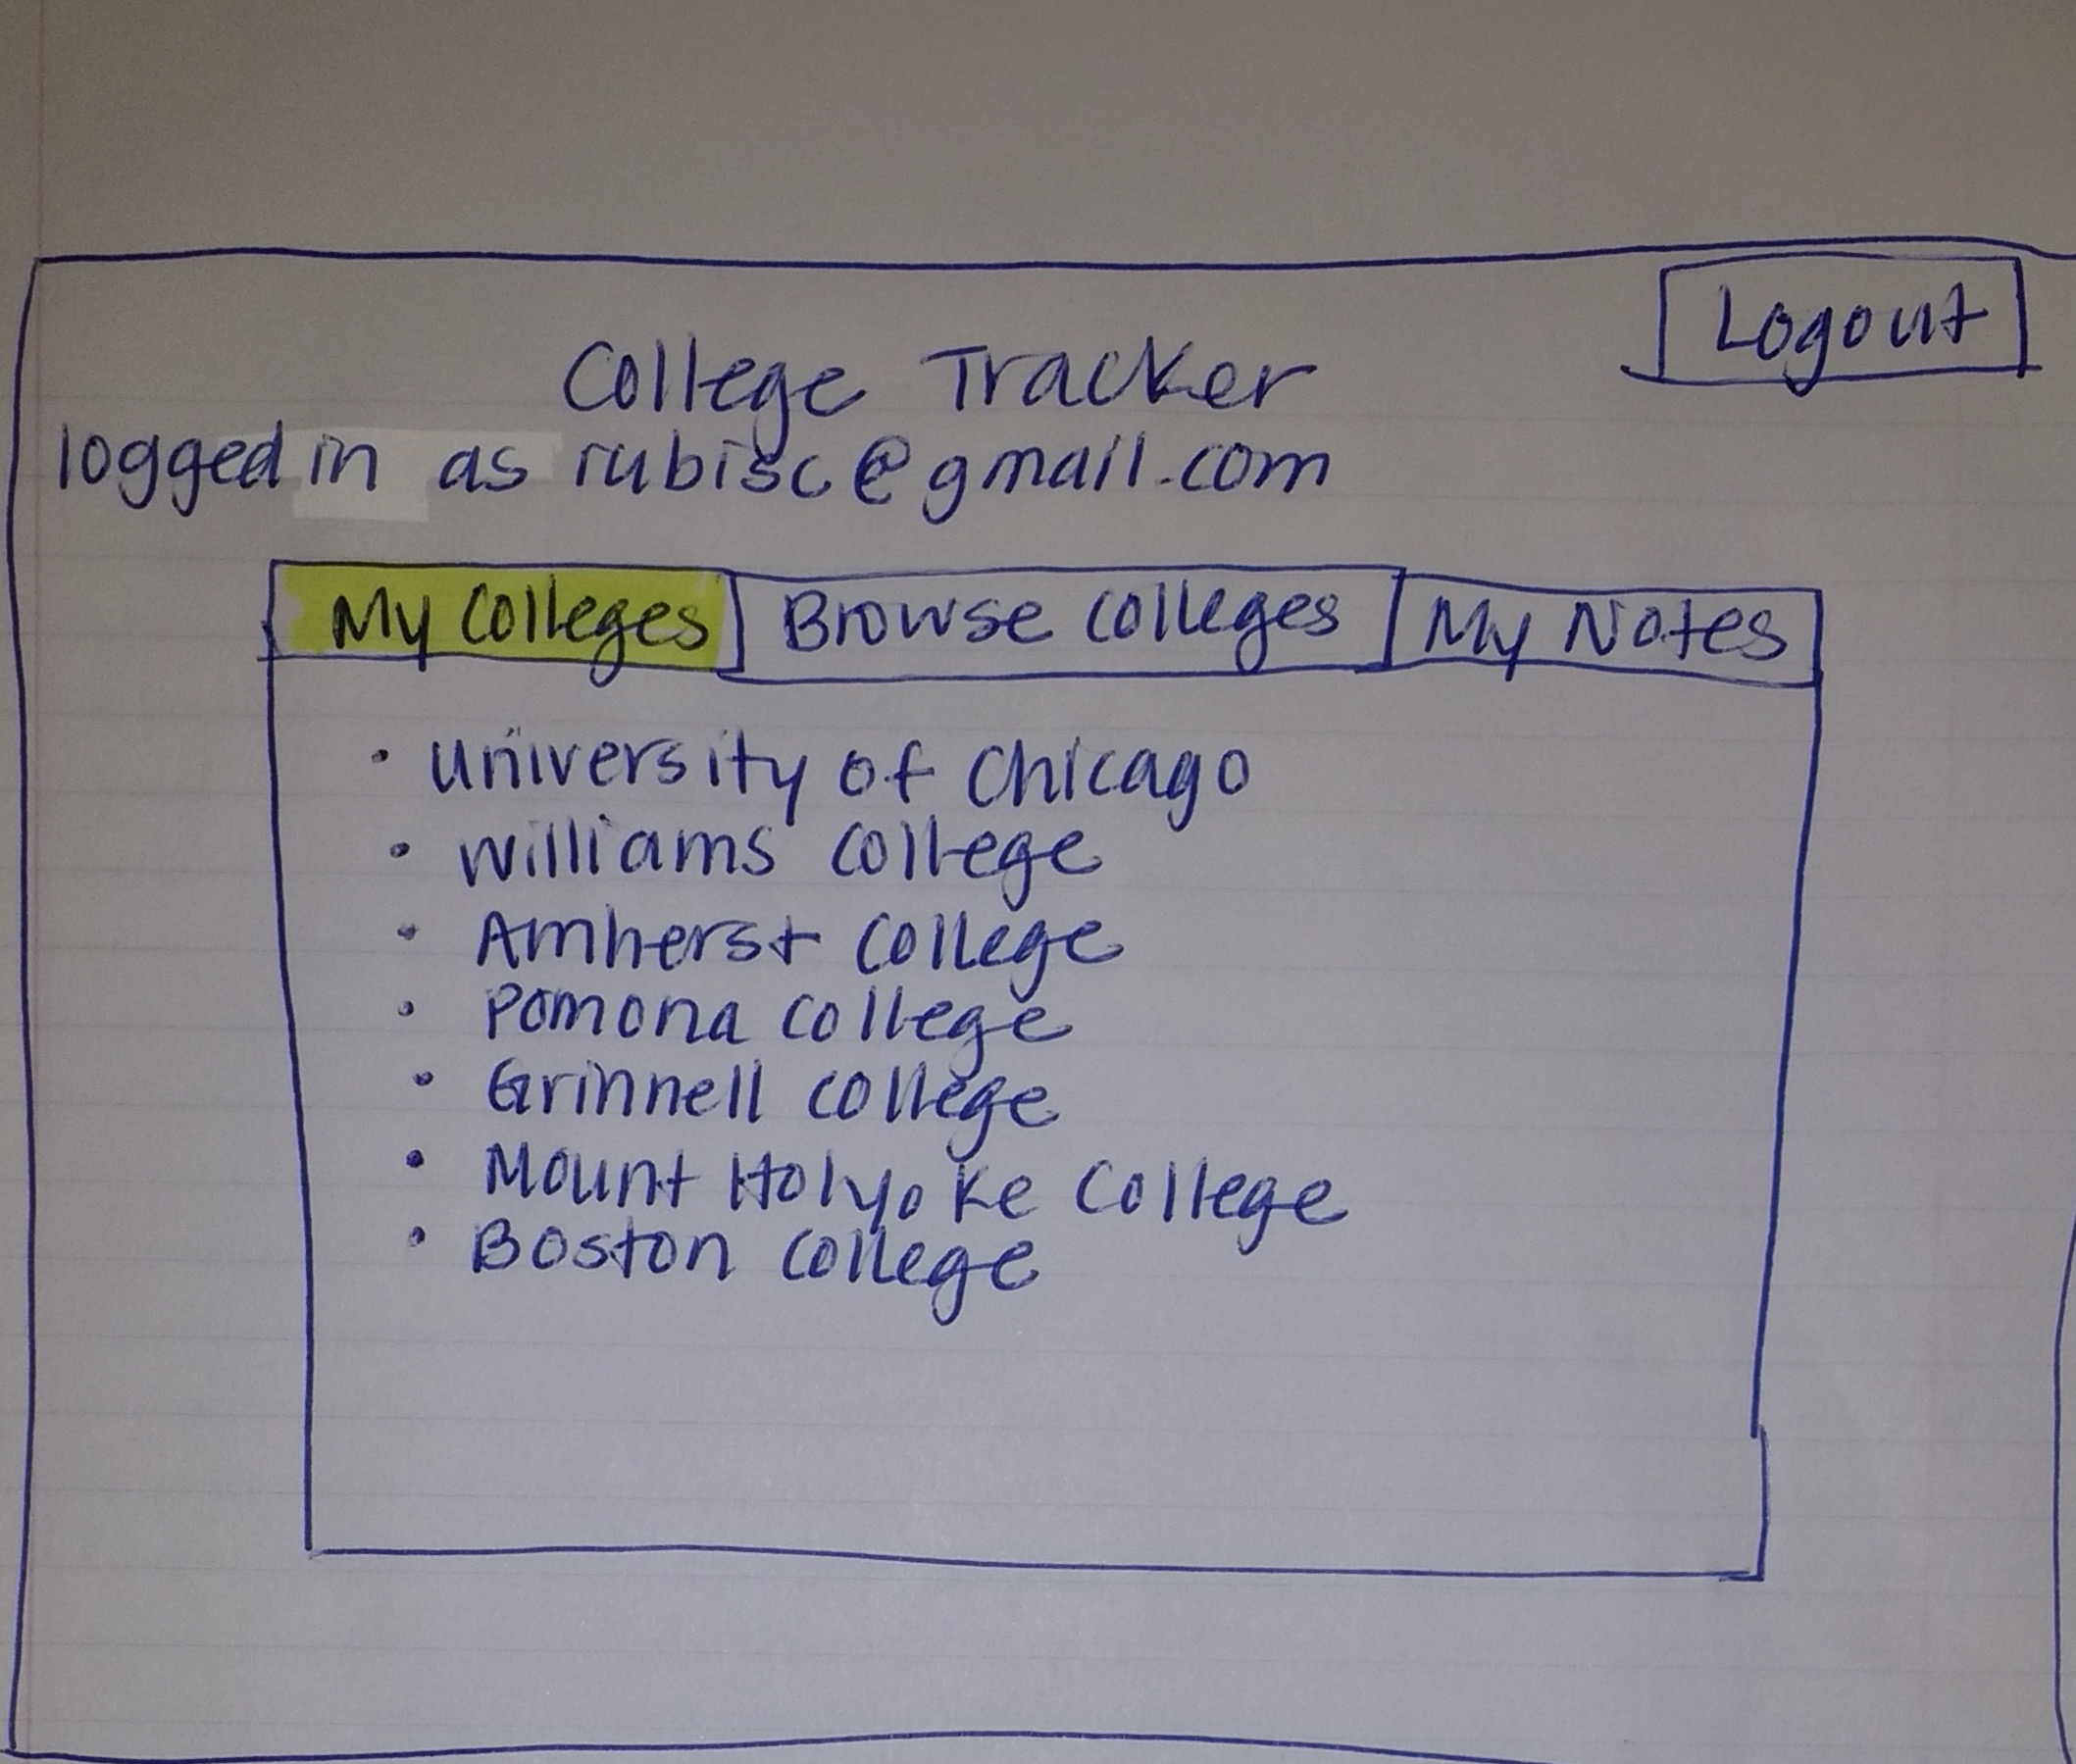 Logout
College Tracker
logged in as rubisc@gmail.com
My Colleges Browse Colleges My Notes
• University of Chicago
• Williams College
• Amherst College
• Pomona College
• Grinnell College
• Mount Holyoke College
• Boston College